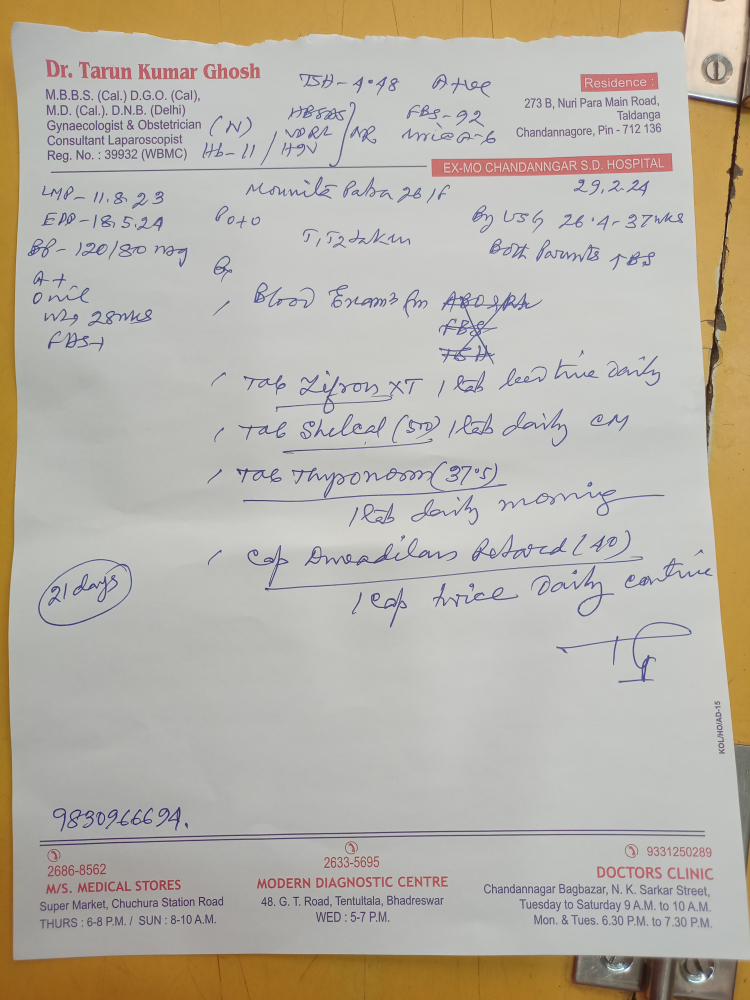 Dr. Tarun Kumar Ghosh
M.B.B.S. (Cal.) D.G.O. (Cal),
M.D. (Cal.). D.N.B. (Delhi)
Gynaecologist & Obstetrician
Consultant Laparoscopist
Reg. No. : 39932 (WBMC)
TSH - 4.48 A+ve
(N) VDRL NR FBS - 92
Hb - 11 /
Residence :
273 B, Nuri Para Main Road,
Taldanga
Chandannagore, Pin - 712 136
EX-MO CHANDANNGAR S.D. HOSPITAL
LMP - 11.8.23
EDD - 18.5.24
BP - 120/80
A+
O nil
28 wks
29.2.24
P0+0
By USG 26.4 - 37 wks
T1, T2 taken
Both Parents
Rx
/ Blood
FBS
TSH
/ Tab XT 1 tab daily
/ Tab Shelcal (500) 1 tab daily
/ Tab (37.5)
1 tab daily morning
/ Cap Retard (40)
1 cap twice daily continue
21 days
KOL/HO/AD-15
9830966694.
2686-8562
M/S. MEDICAL STORES
Super Market, Chuchura Station Road
THURS : 6-8 P.M. / SUN : 8-10 A.M.
2633-5695
MODERN DIAGNOSTIC CENTRE
48. G. T. Road, Tentultala, Bhadreswar
WED : 5-7 P.M.
9331250289
DOCTORS CLINIC
Chandannagar Bagbazar, N. K. Sarkar Street,
Tuesday to Saturday 9 A.M. to 10 A.M.
Mon. & Tues. 6.30 P.M. to 7.30 P.M.